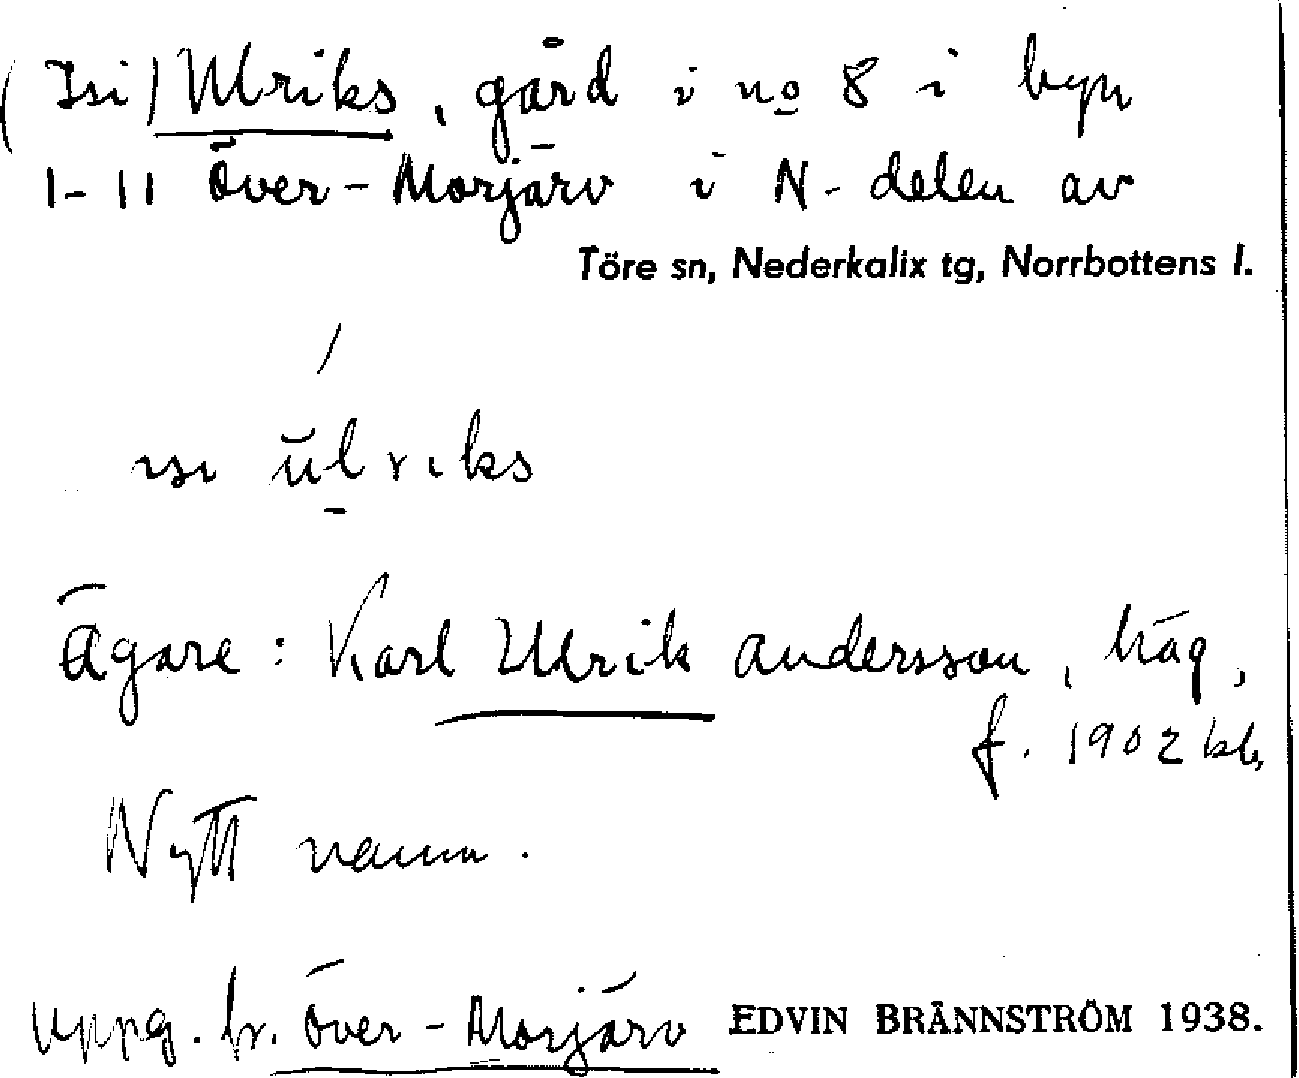 (Isi) Ulriks, gård i no 8 i byn
1-11 Över-Morjärv i N-delen av
Töre sn, Nederkalix tg, Norrbottens l.
ısı ŭlrıks
Ägare: Karl Ulrik Andersson, häg,
f. 1902 kb,
Nytt namn.
Uppg. fr. Över-Morjärv EDVIN BRÄNNSTRÖM 1938.